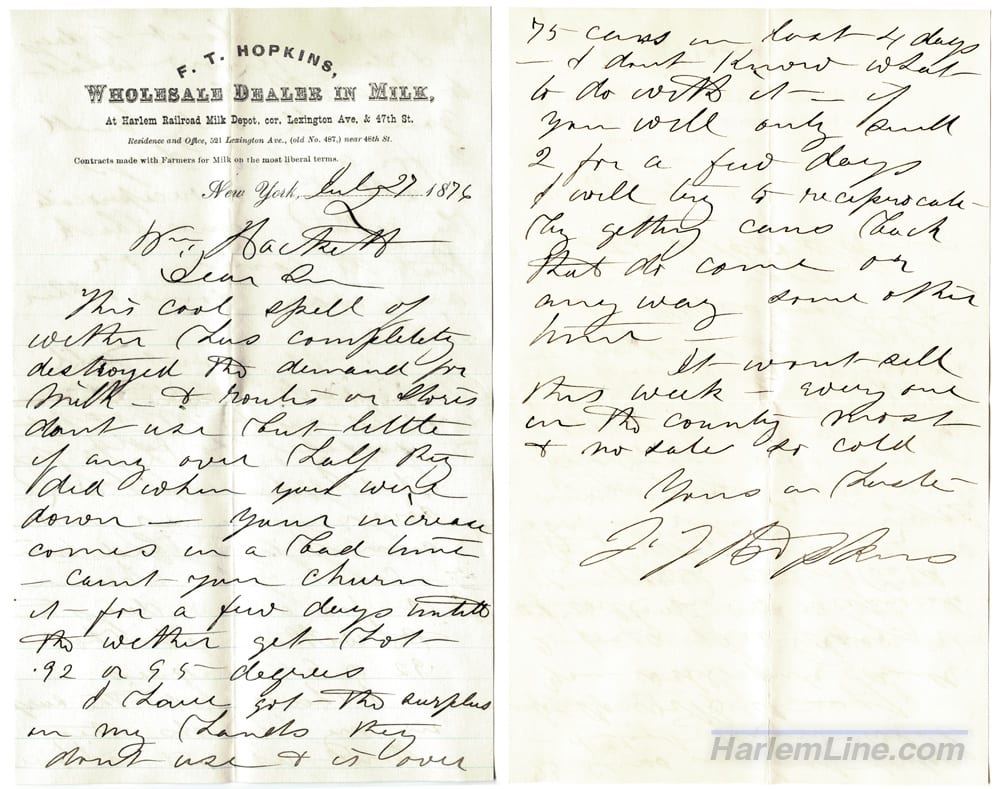 F. T. HOPKINS,
WHOLESALE DEALER IN MILK,
At Harlem Railroad Milk Depot, cor. Lexington Ave, & 47th St.
Residence and Office, 521 Lexington Ave., (old No. 487,) near 48th St.
Contracts made with Farmers for Milk on the most liberal terms.
New York, July 27 1876
Wm. Hackett
Dear Sir
This cool spell of
wether has completely
destroyed the demand for
Milk - & routes or Stores
dont use but little
if any over half they
did when you were
down — your increase
comes in a bad time
- cant you churn
it - for a few days untill
the wether get hot -
.92 or 95 degrees
I have got - the surplus
on my hands they
dont use & is over
75 cans in last 4 days
- I dont know what
to do with it - if
you will only send
2 for a few days
I will try to reciprocate -
by getting cans back
that do come or
any way some other
time -
It wont sell
this week - every one
in the country most
& no sale so cold
Yours in haste -
F. T. Hopkins
HarlemLine.com